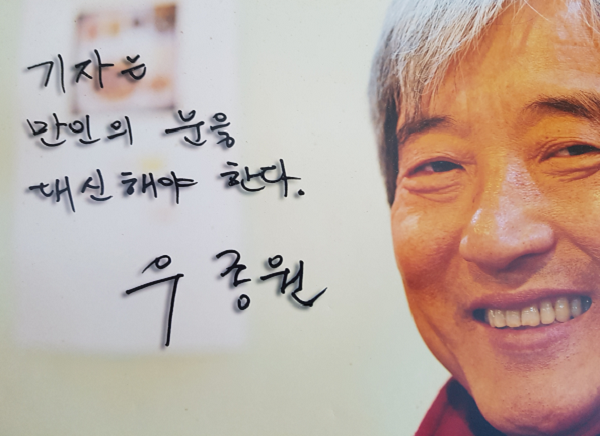 기자는
만인의 눈을
대신해야 한다.
우종원